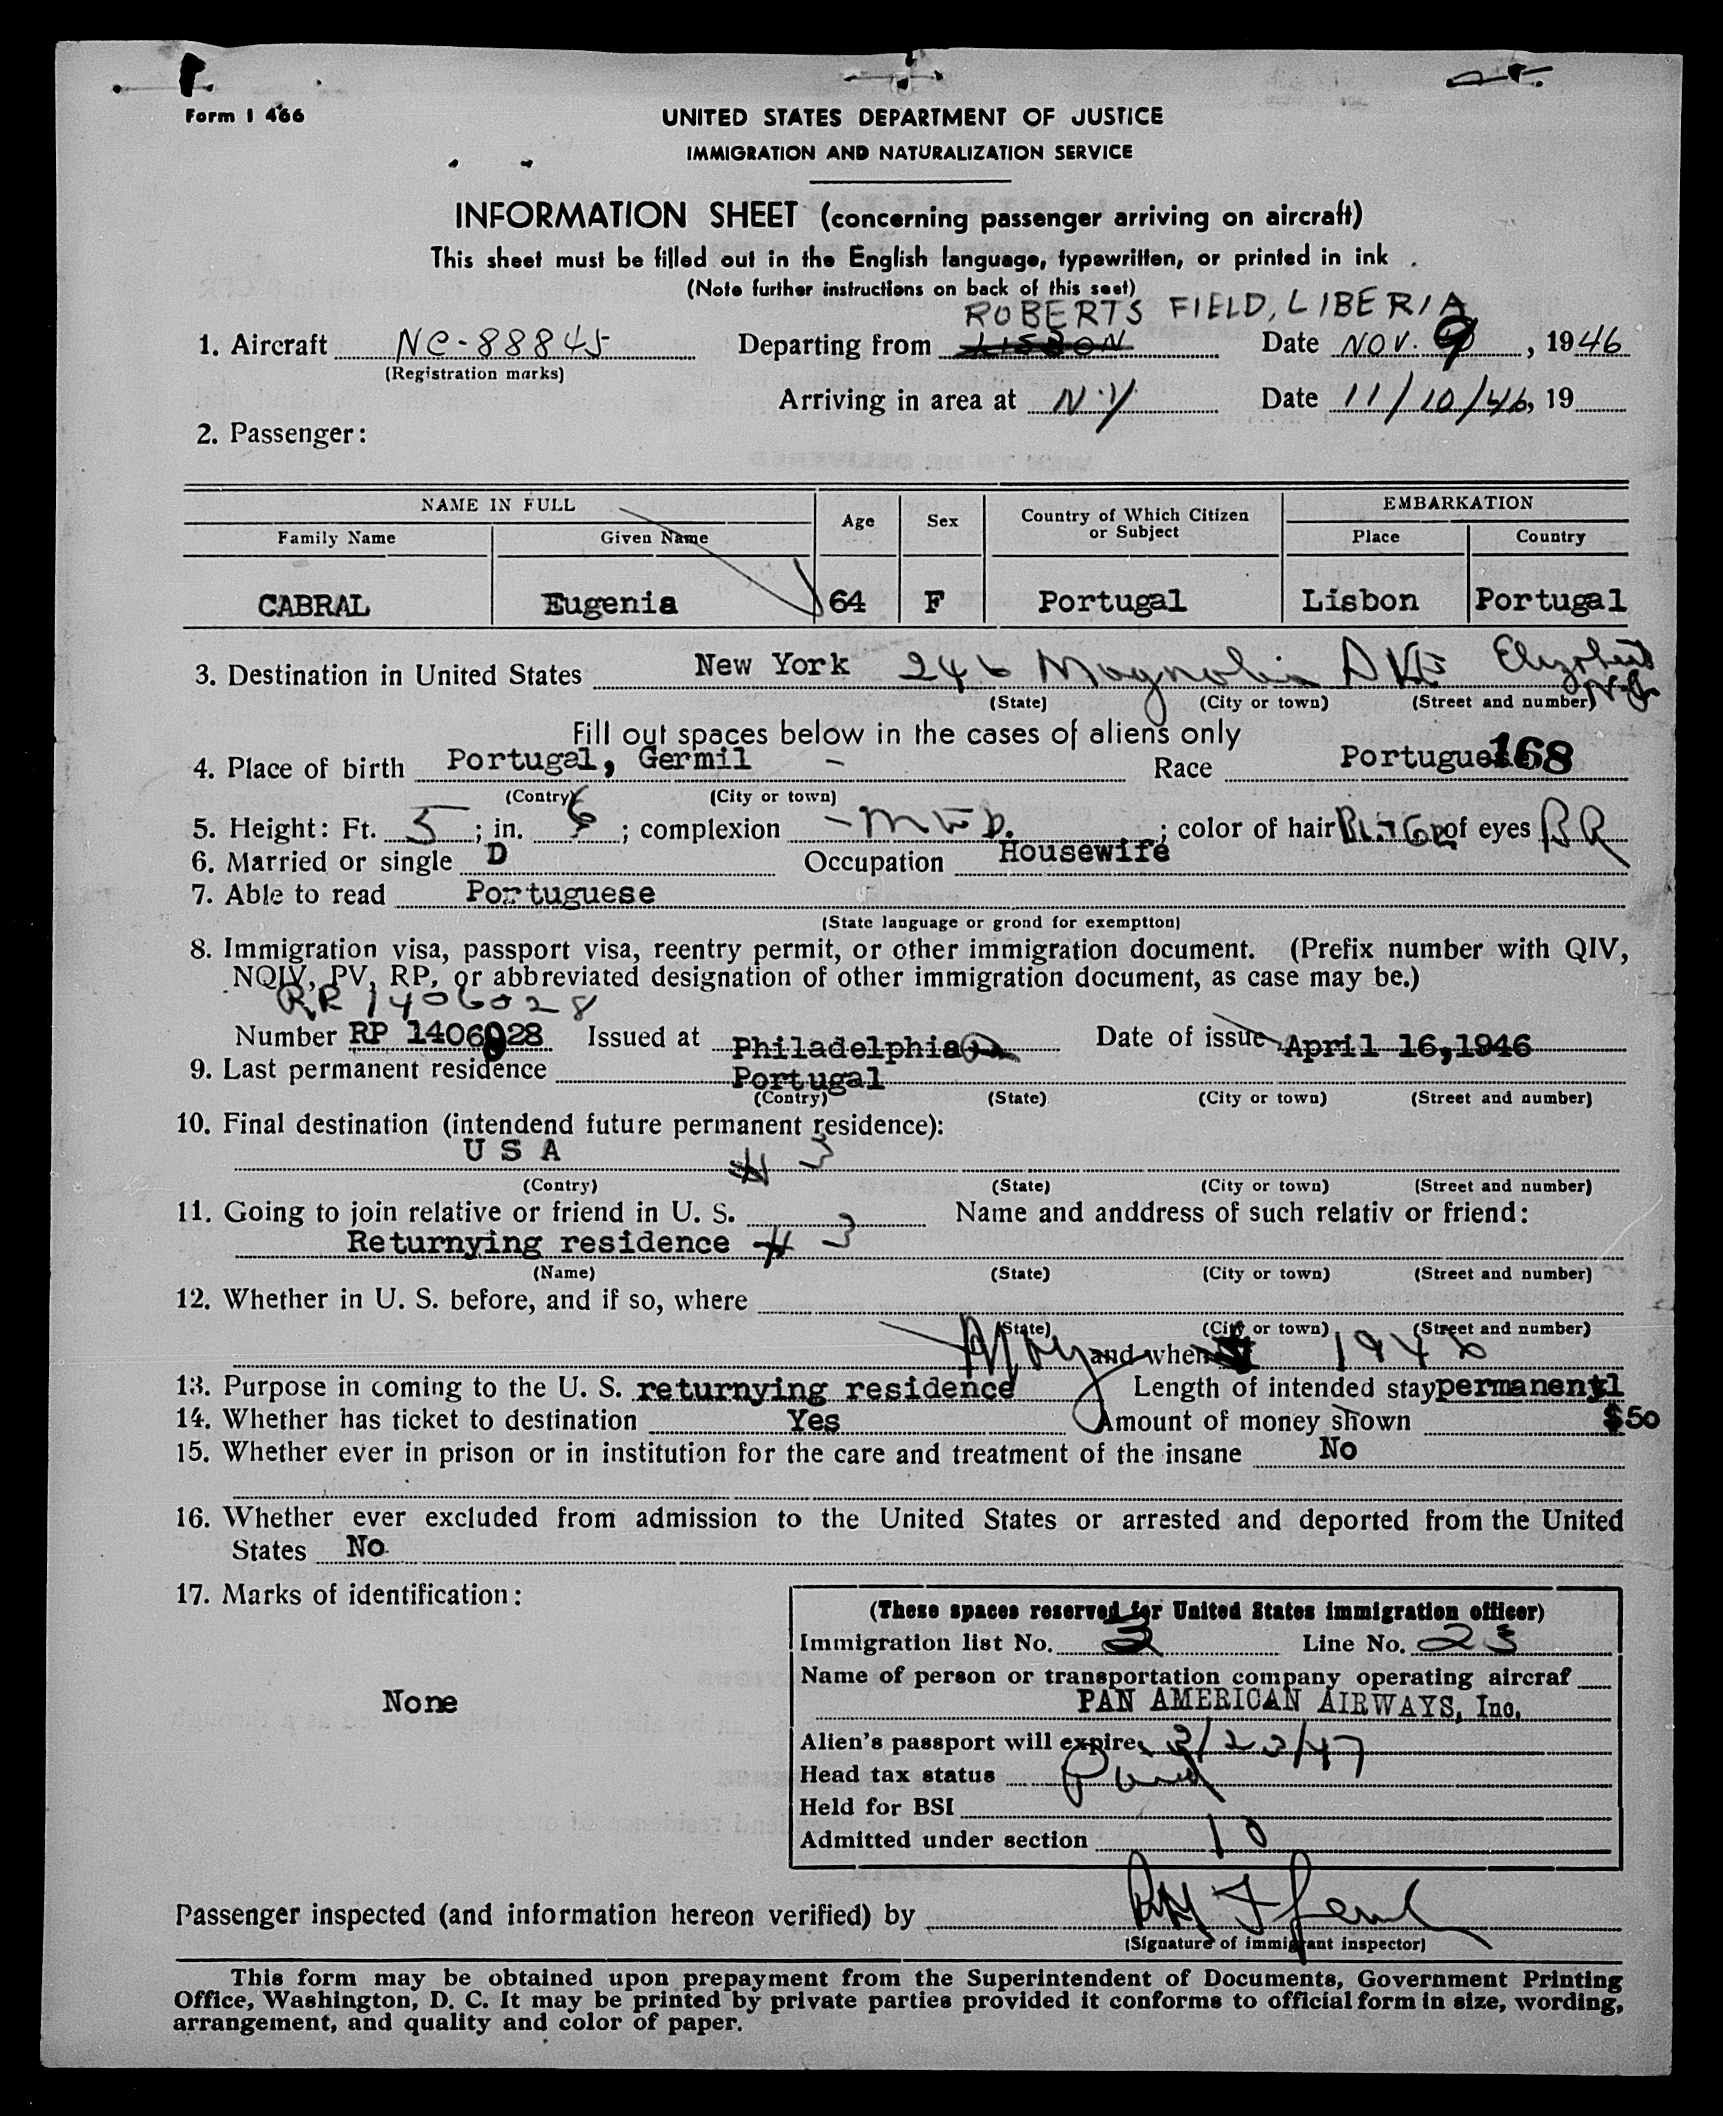 Form I 466
UNITED STATES DEPARTMENT OF JUSTICE
IMMIGRATION AND NATURALIZATION SERVICE
INFORMATION SHEET (concerning passenger arriving on aircraft)
This sheet must be filled out in the English language, typewritten, or printed in ink .
(Note further instructions on back of this seet)
ROBERTS FIELD, LIBERIA
1. Aircraft NC-88845 Departing from LISBON Date NOV. 9, 1946
(Registration marks)
Arriving in area at N.Y. Date 11/10/46, 19
2. Passenger:
NAME IN FULL Age Sex Country of Which Citizen or Subject EMBARKATION
Family Name Given Name Place Country
CABRAL Eugenia 64 F Portugal Lisbon Portugal
3. Destination in United States New York 246 Magnolia AVE Elizabeth N.J.
(State) (City or town) (Street and number)
Fill out spaces below in the cases of aliens only
4. Place of birth Portugal, Germil - Race Portugues 168
(Contry) (City or town)
5. Height: Ft. 5; in. 6; complexion - MED.; color of hair of eyes BR
6. Married or single D Occupation Housewife
7. Able to read Portuguese
(State language or grond for exemption)
8. Immigration visa, passport visa, reentry permit, or other immigration document. (Prefix number with QIV,
NQIV, PV, RP, or abbreviated designation of other immigration document, as case may be.)
RR 1406028
Number RP 1406028 Issued at Philadelphia Date of issue April 16,1946
9. Last permanent residence Portugal
(Contry) (State) (City or town) (Street and number)
10. Final destination (intendend future permanent residence):
U S A # 3
(Contry) (State) (City or town) (Street and number)
11. Going to join relative or friend in U. S. Name and anddress of such relativ or friend:
Returnying residence # 3
(Name) (State) (City or town) (Street and number)
12. Whether in U. S. before, and if so, where
(State) (City or town) (Street and number)
May and when 1946
13. Purpose in coming to the U. S. returnying residence Length of intended stay permanentl
14. Whether has ticket to destination Yes Amount of money shown $50
15. Whether ever in prison or in institution for the care and treatment of the insane No
16. Whether ever excluded from admission to the United States or arrested and deported from the United
States No
17. Marks of identification:
(These spaces reserved for United States immigration officer)
Immigration list No. 3 Line No. 23
Name of person or transportation company operating aircraf
None
PAN AMERICAN AIRWAYS, Inc.
Alien's passport will expire 3/23/47
Head tax status Paid
Held for BSI
Admitted under section 10
Passenger inspected (and information hereon verified) by
(Signature of immigrant inspector)
This form may be obtained upon prepayment from the Superintendent of Documents, Government Printing
Office, Washington, D. C. It may be printed by private parties provided it conforms to official form in size, wording,
arrangement, and quality and color of paper.